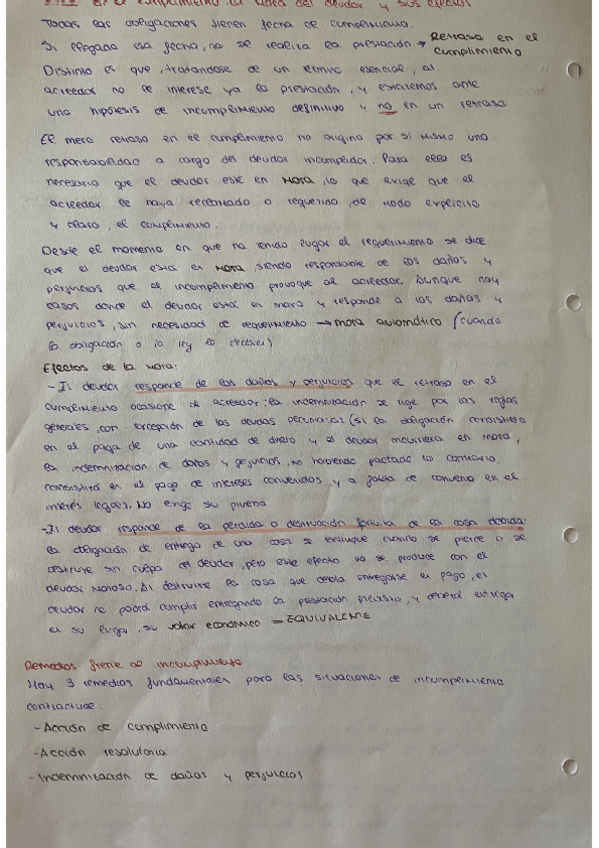 en el cumplimiento. La mora del deudor y sus efectos
Todas las obligaciones tienen fecha de cumplimiento.
Si llegada esa fecha, no se realiza la prestación → Retraso en el
cumplimiento
Distinto es que, tratándose de un término esencial, al
acreedor no le interese ya la prestación, y estaremos ante
una hipótesis de incumplimiento definitivo y no en un retraso
El mero retraso en el cumplimiento no origina por si mismo una
responsabilidad a cargo del deudor incumplidor. Para ello es
necesario que el deudor esté en MORA, lo que exige que el
acreedor le haya reclamado o requerido, de modo expreso
y claro, el cumplimiento.
Desde el momento en que ha tenido lugar el requerimiento se dice
que el deudor está en MORA, siendo responsable de los daños y
perjuicios que al incumplimiento provoque al acreedor. Aunque hay
casos donde el deudor está en mora y responde a los daños y
perjuicios, sin necesidad de requerimiento → mora automático (cuando
la obligación o la ley lo)
Efectos de la mora:
- El deudor responde de los daños y perjuicios que el retraso en el
cumplimiento ocasione al acreedor: la indemnización se rige por las reglas
generales, con excepción de las deudas pecuniarias (si la obligación consistiera
en el pago de una cantidad de dinero y el deudor incurriera en mora,
la indemnización de daños y perjuicios, no habiendo pactado lo contrario,
consistirá en el pago de intereses convenidos, y a falta de convenio en el
interés legal). No exige su prueba
- El deudor responde de la perdida o destrucción fortuita de la cosa debida:
la obligación de entrega de una cosa se extingue cuando se pierde o se
destruye sin culpa del deudor, pero este efecto no se produce con el
deudor moroso. Al destruirse la cosa que debía entregarse en pago, el
deudor no podrá cumplir entregando la prestación prevista, y deberá entregar
en su lugar, su valor económico = EQUIVALENTE
Remedios frente al incumplimiento
Hay 3 remedios fundamentales para las situaciones de incumplimiento
contractual:
- Acción de cumplimiento
- Acción resolutoria
- Indemnización de daños y perjuicios